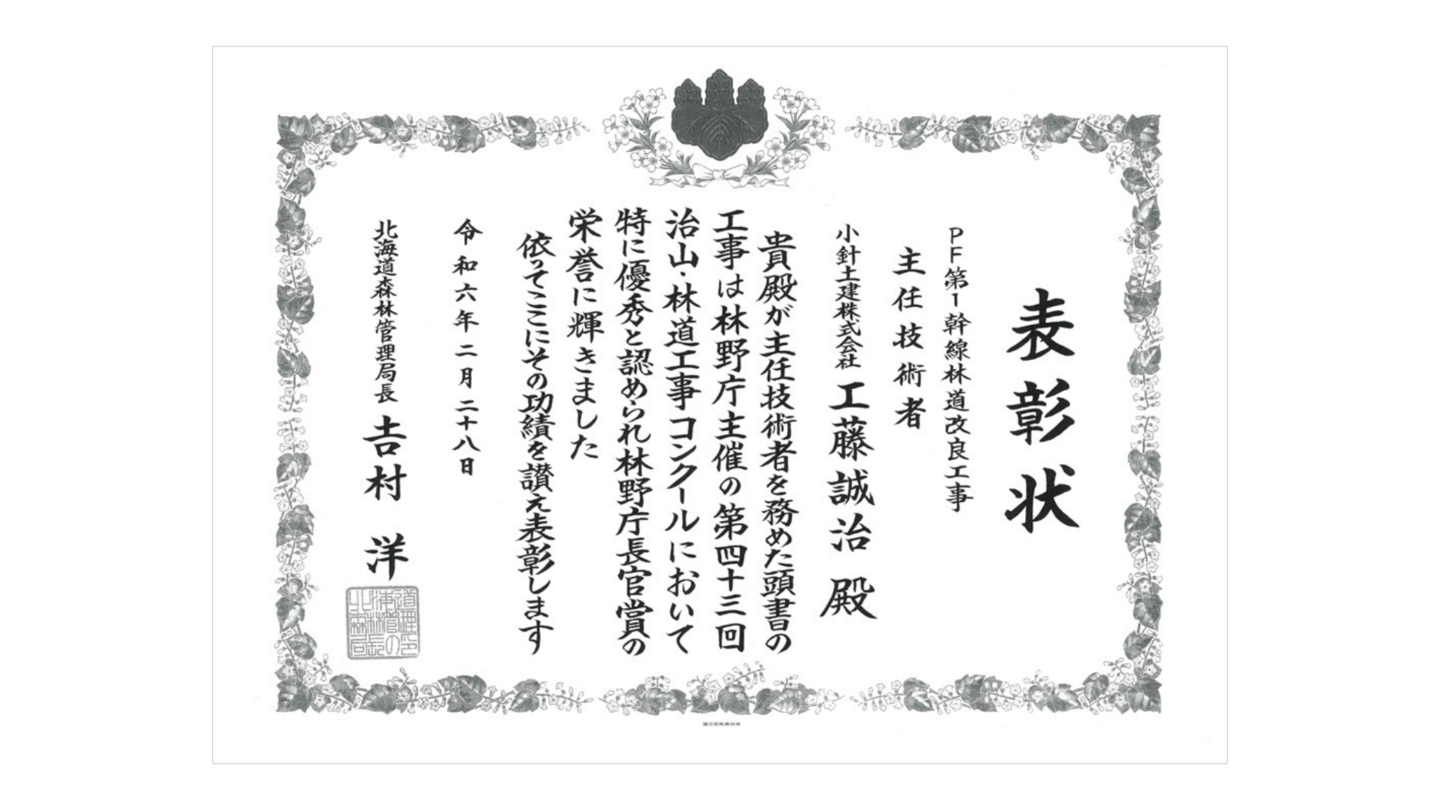 表彰状
PF第1幹線林道改良工事
主任技術者
小針土建株式会社 工藤誠治 殿
貴殿が主任技術者を務めた頭書の
工事は林野庁主催の第四十三回
治山・林道工事コンクールにおいて
特に優秀と認められ林野庁長官賞の
栄誉に輝きました
依ってここにその功績を讃え表彰します
令和六年二月二十八日
北海道森林管理局長 吉村 洋